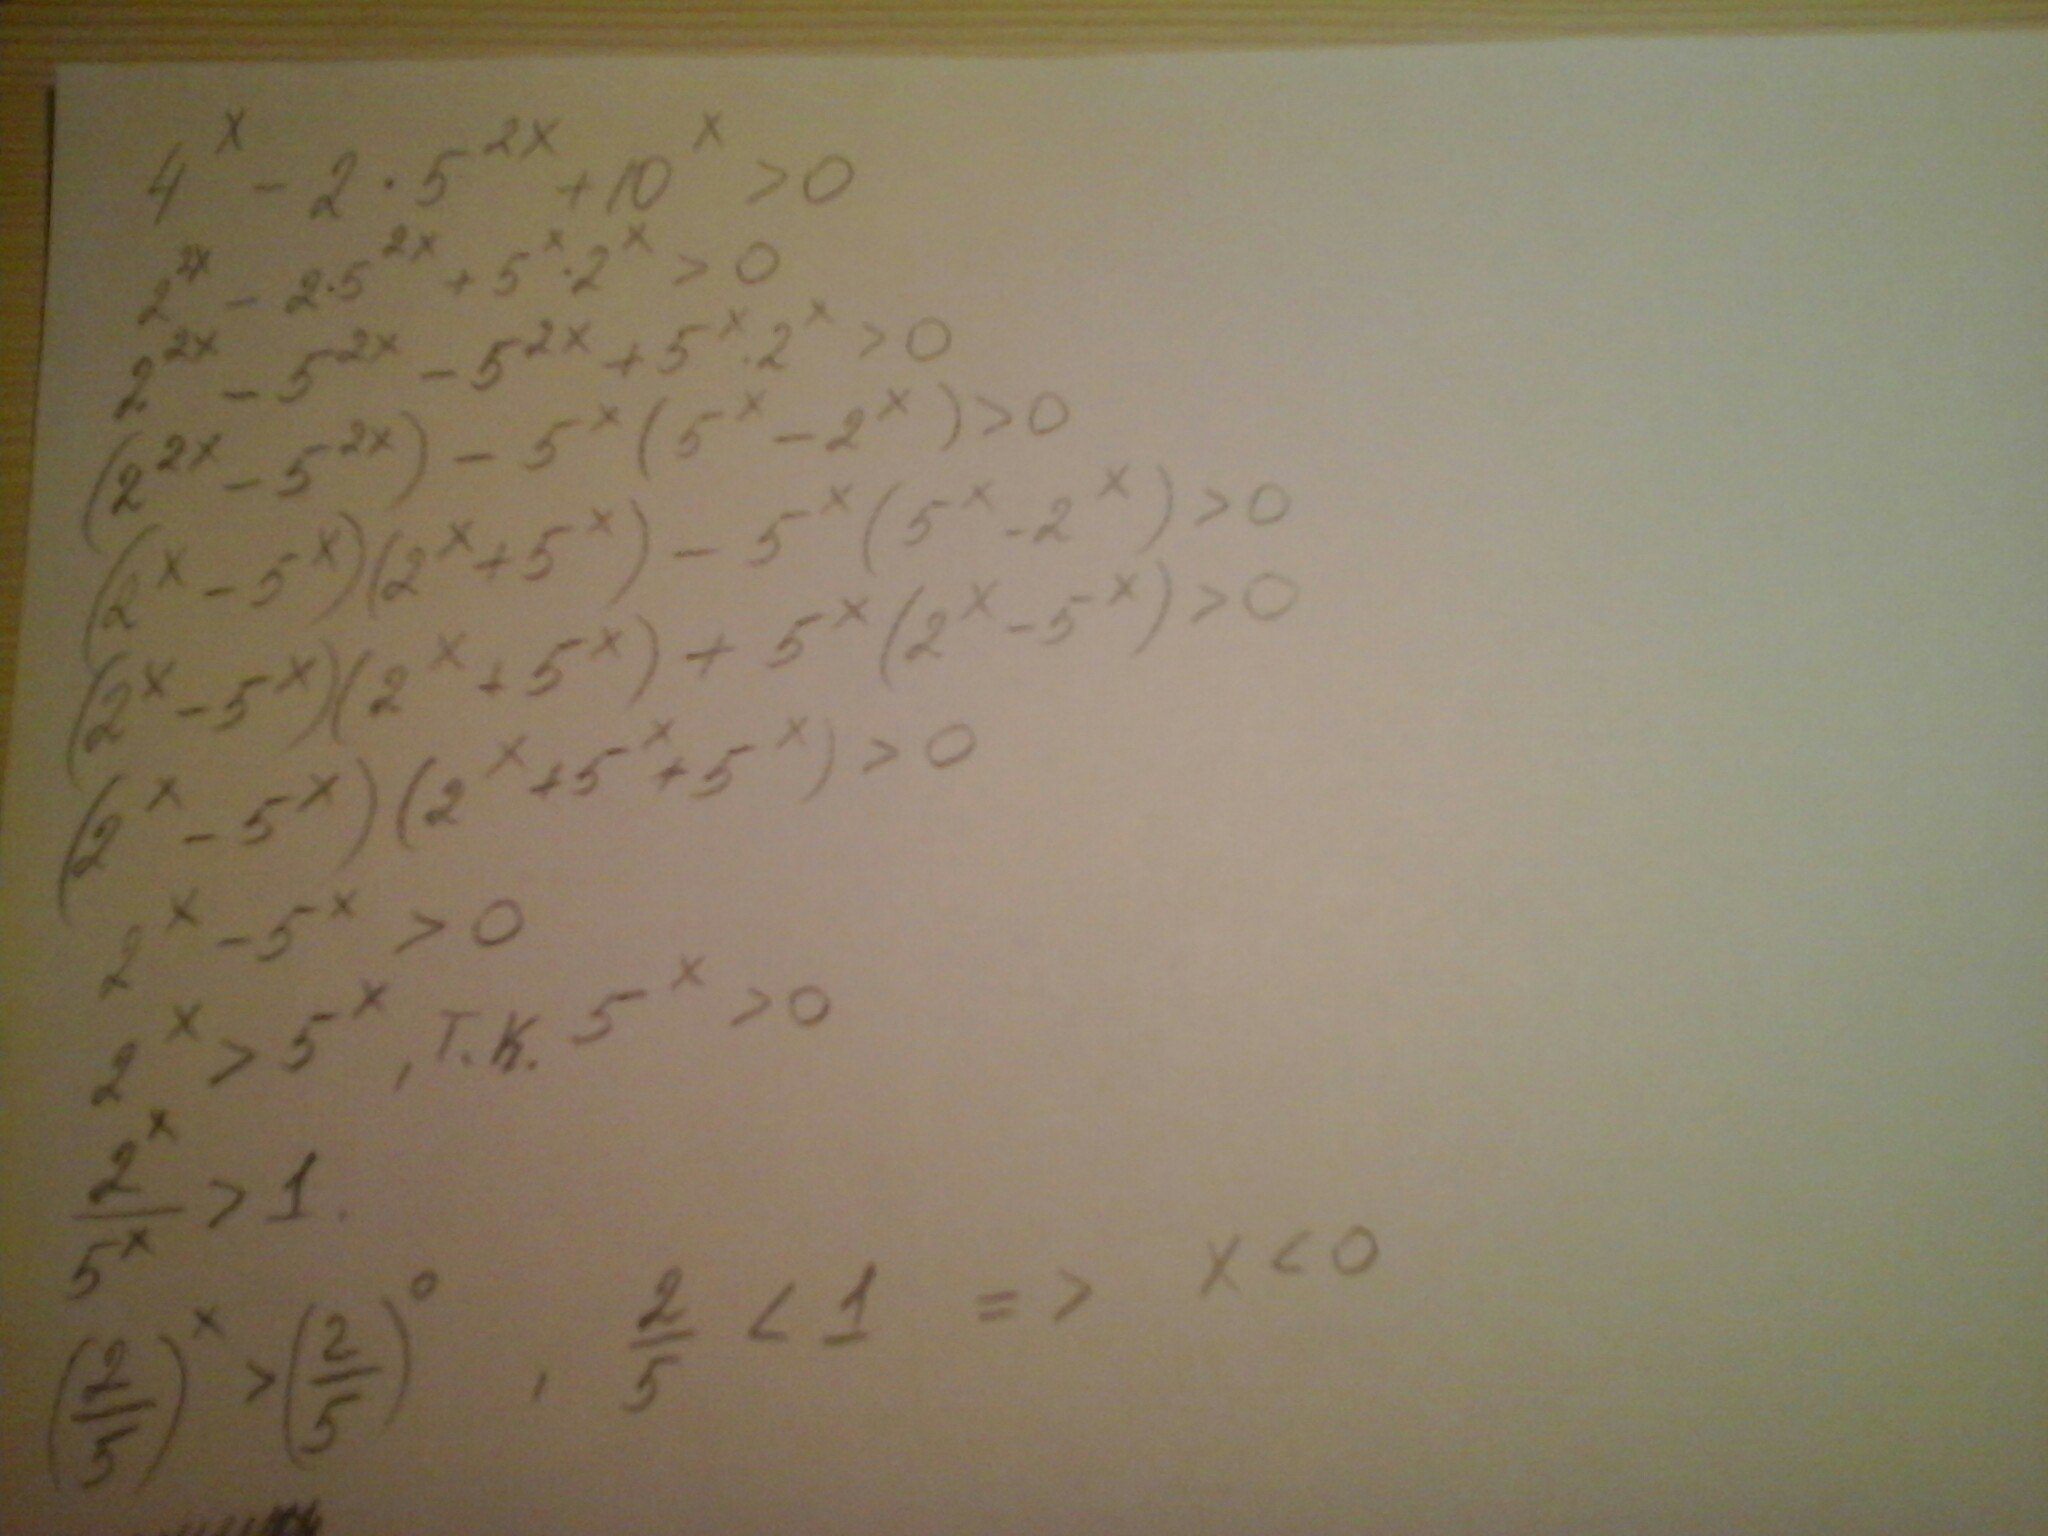 4^x - 2 · 5^{2x} + 10^x > 0
2^{2x} - 2·5^{2x} + 5^x · 2^x > 0
2^{2x} - 5^{2x} - 5^{2x} + 5^x · 2^x > 0
(2^{2x} - 5^{2x}) - 5^x (5^x - 2^x) > 0
(2^x - 5^x)(2^x + 5^x) - 5^x (5^x - 2^x) > 0
(2^x - 5^x)(2^x + 5^x) + 5^x (2^x - 5^x) > 0
(2^x - 5^x)(2^x + 5^x + 5^x) > 0
2^x - 5^x > 0
2^x > 5^x, т.к. 5^x > 0
\frac{2^x}{5^x} > 1.
(\frac{2}{5})^x > (\frac{2}{5})^0, \frac{2}{5} < 1 => x < 0